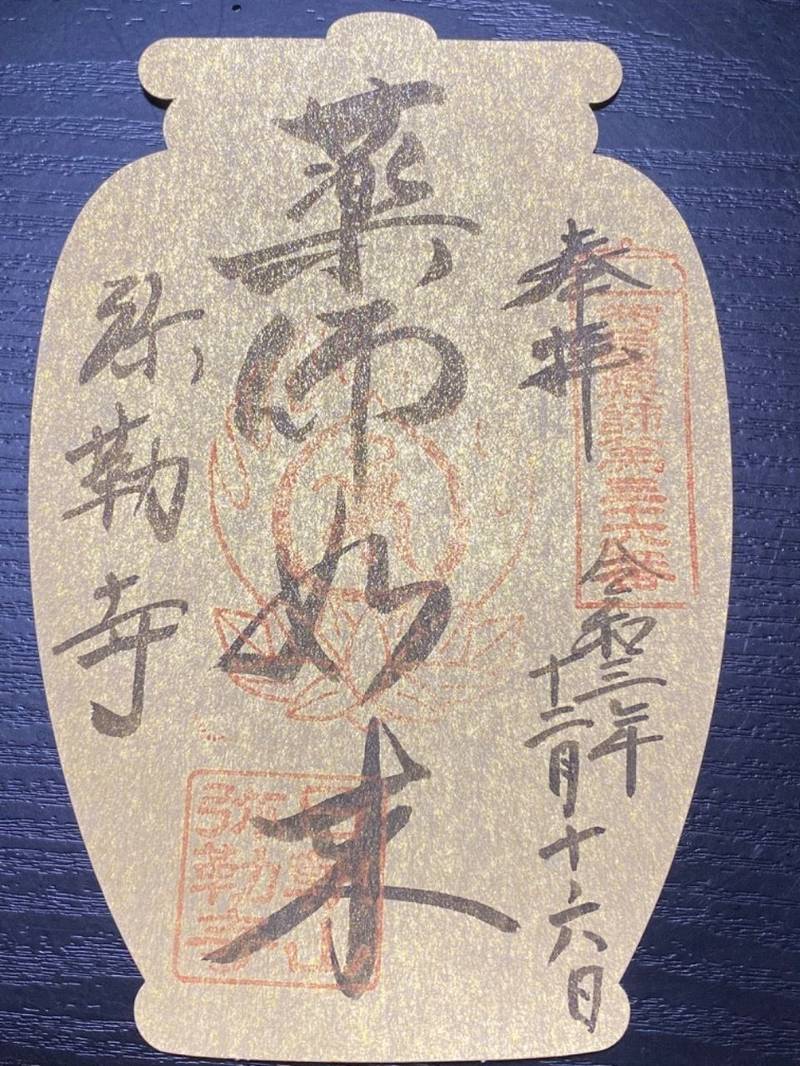 奉拝
令和三年
十二月十六日
薬師如来
弥勒寺
弥勒寺